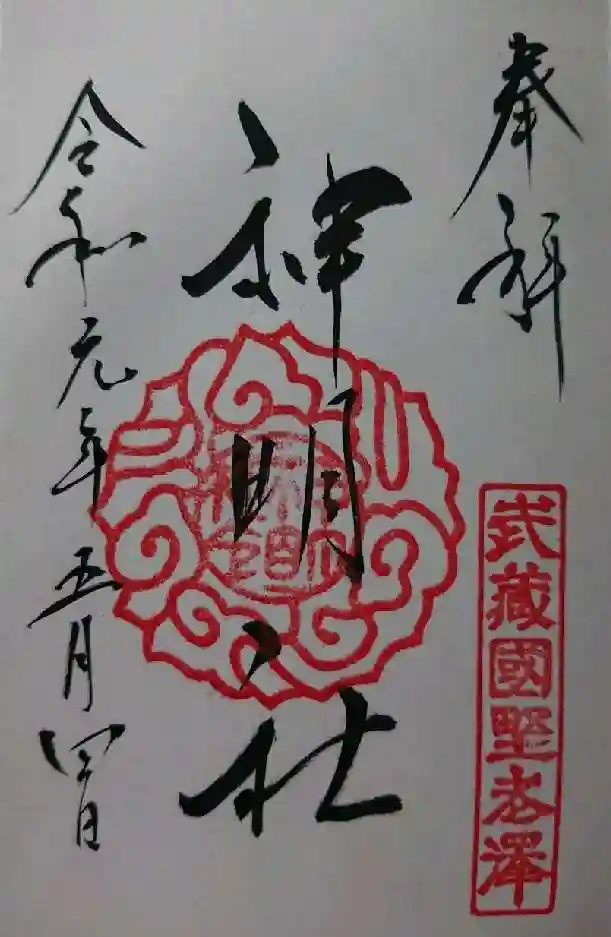 奉拝
武藏國野老澤
神明社
令和元年五月四日